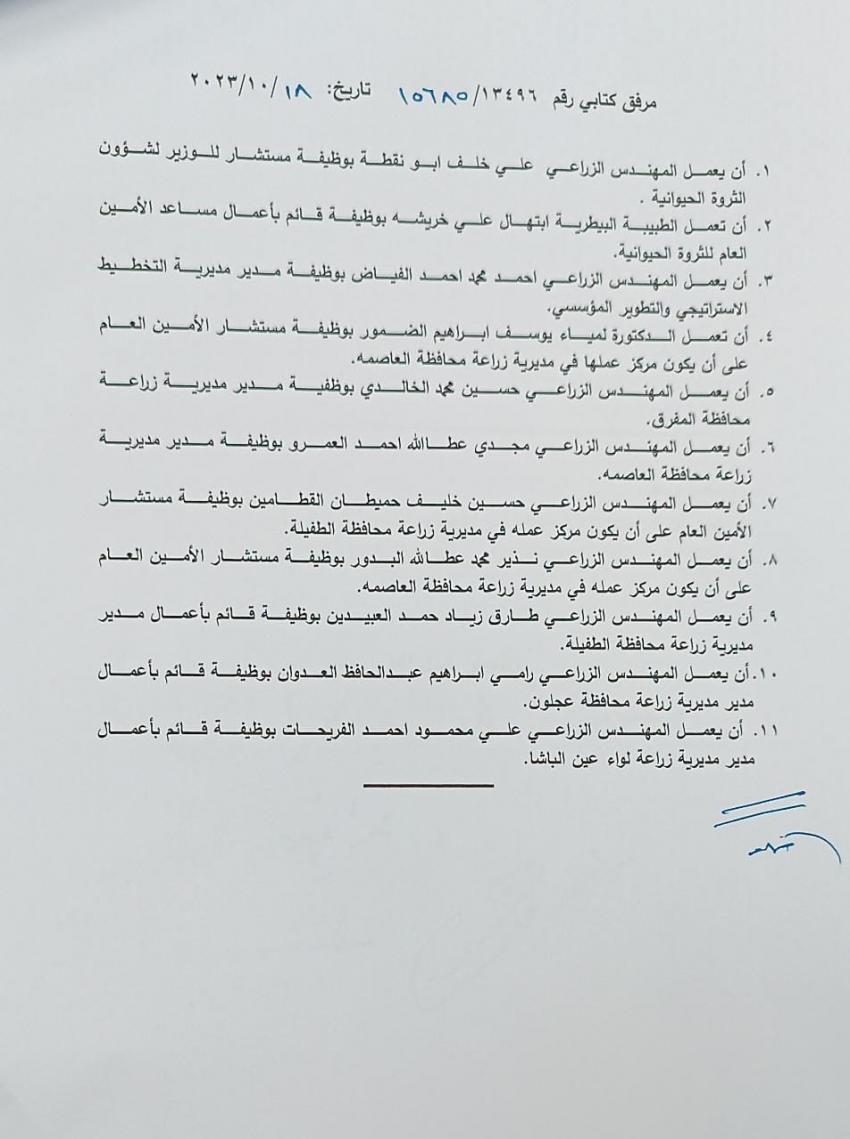 مرفق كتابي رقم ١٥٦٨٥/١٣٤٩٦ تاريخ: ٢٠٢٣/١٠/١٨
١. أن يعمل المهندس الزراعي علي خلف ابو نقطة بوظيفة مستشار للوزير لشؤون
الثروة الحيوانية .
٢. أن تعمل الطبيبة البيطرية ابتهال علي خريشه بوظيفة قائم بأعمال مساعد الأمين
العام للثروة الحيوانية.
٣. أن يعمل المهندس الزراعي احمد محمد احمد الفياض بوظيفة مدير مديرية التخطيط
الاستراتيجي والتطوير المؤسسي.
٤. أن تعمل الدكتورة لمياء يوسف ابراهيم الضمور بوظيفة مستشار الأمين العام
على أن يكون مركز عملها في مديرية زراعة محافظة العاصمه.
٥. أن يعمل المهندس الزراعي حسين محمد الخالدي بوظفية مدير مديرية زراعة
محافظة المفرق.
٦. أن يعمل المهندس الزراعي مجدي عطاالله احمد العمرو بوظيفة مدير مديرية
زراعة محافظة العاصمه.
٧. أن يعمل المهندس الزراعي حسين خليف حميطان القطامين بوظيفة مستشار
الأمين العام على أن يكون مركز عمله في مديرية زراعة محافظة الطفيلة.
٨. أن يعمل المهندس الزراعي نذير محمد عطاالله البدور بوظيفة مستشار الأمين العام
على أن يكون مركز عمله في مديرية زراعة محافظة العاصمه.
٩. أن يعمل المهندس الزراعي طارق زياد حمد العبيدين بوظيفة قائم بأعمال مدير
مديرية زراعة محافظة الطفيلة.
١٠. أن يعمل المهندس الزراعي رامي ابراهيم عبدالحافظ العدوان بوظيفة قائم بأعمال
مدير مديرية زراعة محافظة عجلون.
١١. أن يعمل المهندس الزراعي علي محمود احمد الفريحات بوظيفة قائم بأعمال
مدير مديرية زراعة لواء عين الباشا.